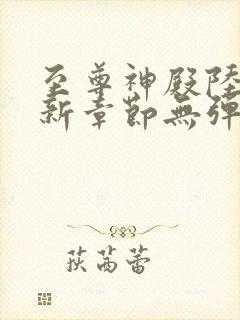 至尊神殿陸
新章節無彈
荻芮蕾